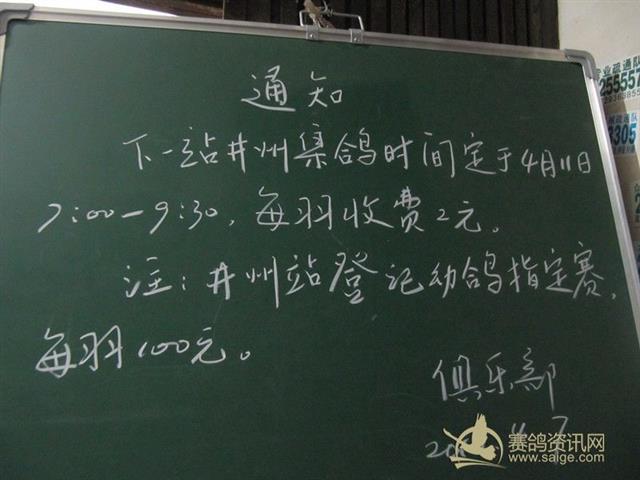 通知
下一站井州集鸽时间定于4月11日
7:00-9:30，每羽收费2元。
注：井州站登记动鸽指定赛，
每羽100元。
俱乐部
赛鸽资讯网
www.saige.com
业疏通队
255557
3305